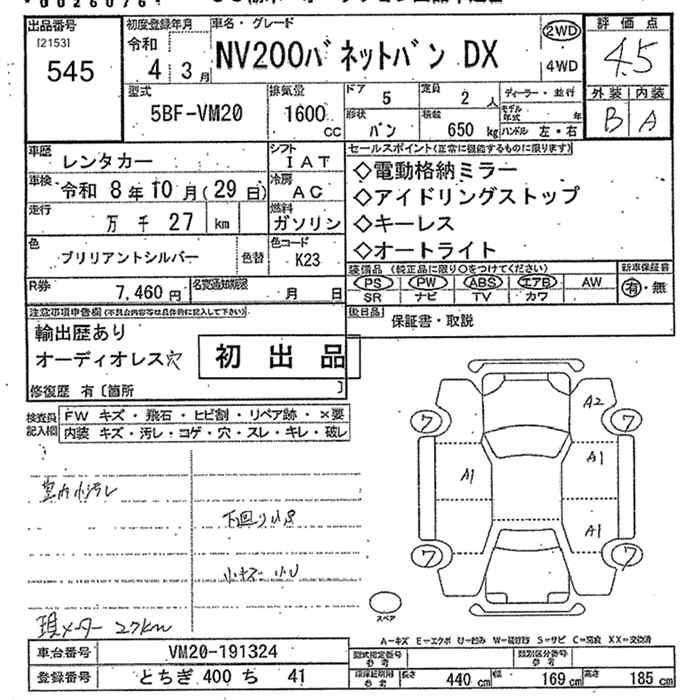 出品番号
[2153]
545
初度登録年月
令和
4 3月
車名・グレード
NV200バネットバン DX
2WD
4WD
評価点
4.5
外装 内装
B A
型式
5BF-VM20
排気量
1600
CC
ドア
5
定員
2人
形状
バン
積載
650 kg
ディーラー・並行
モデル年式 年
ハンドル 左・右
車歴
レンタカー
シフト
IAT
車検
令和 8年10月(29日)
冷房
AC
走行
万 千 27 km
燃料
ガソリン
色
ブリリアントシルバー
色替
色コード
K23
R券
7,460円
名変通知期限
月 日
セールスポイント(正常に機能するものに限ります)
◇電動格納ミラー
◇アイドリングストップ
◇キーレス
◇オートライト
装備品 (純正品に限り○をつけてください)
PS PW ABS エアB AW
SR ナビ TV カワ
新車保証書
有・無
後日品
保証書・取説
注意事項申告欄(不具合内容等は具体的に記入して下さい)
輸出歴あり
オーディオレス穴
初出品
修復歴 有〔箇所 〕
検査員記入欄
FW キズ・飛石・ヒビ割・リペア跡・×要
内装 キズ・汚レ・コゲ・穴・スレ・キレ・破レ
室内小汚レ
下回り小サ
小キズ 小U
現メーター 27km
ワ
A2
ワ
A1
A1
A1
ワ
ワ
スペア
A=キズ E=エクボ U=凹み W=補修跡 S=サビ C=腐食 XX=交換済
車台番号
VM20-191324
登録番号
とちぎ 400 ち 41
型式指定番号
参考
類別区分番号
参考
長さ 440 cm
幅 169 cm
高さ 185 cm